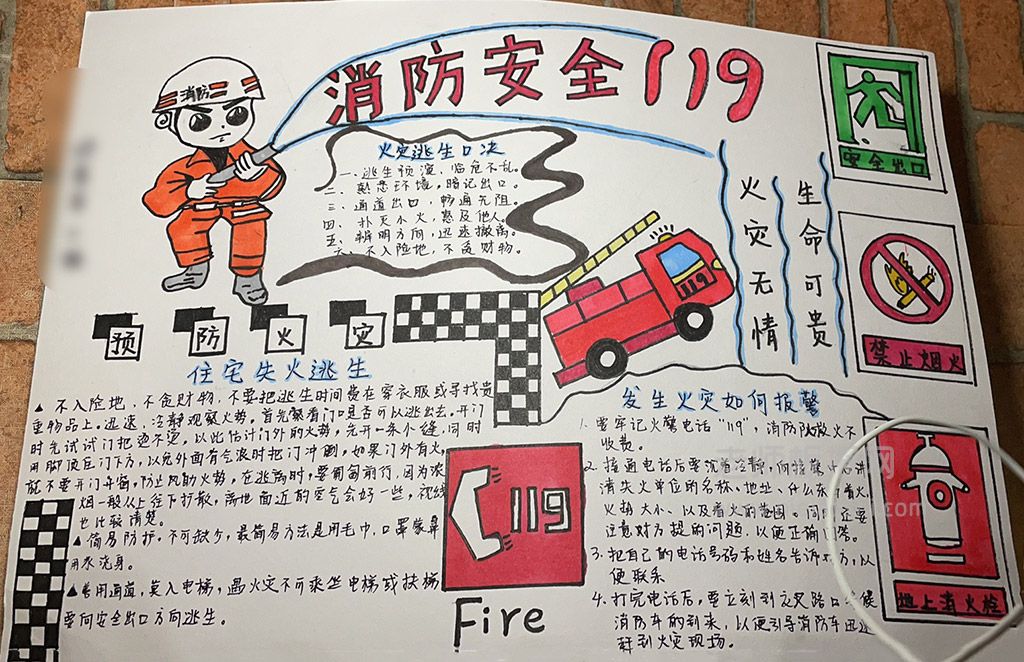 消防安全119
消防
火灾逃生口决
一、逃生预演、临危不乱。
二、熟悉环境，暗记出口。
三、通道出口，畅通无阻。
四、扑灭小火，惠及他人。
五、辨明方向，迅速撤离。
六、不入险地，不贪财物。
119
火灾无情
生命可贵
安全出口
禁止烟火
地上消火栓
预防火灾
住宅失火逃生
▲不入险地、不贪财物、不要把逃生时间费在穿衣服或寻找贵
重物品上。迅速、冷静观察火势。首先察看门口是否可以逃出去。开门
时先试试门把烫不烫，以此估计门外的火势，先开一条小缝，同时
用脚顶后门下方，以免外面有气浪时把门冲倒。如果门外有火，
就不要开门开窗，防止风助火势。在逃离时，要匍匐前行，因为浓
烟一般从上往下扩散，离地面近的空气会好一些，视线
也比较清楚。
▲简易防护。不可缺少，最简易方法是用毛巾、口罩蒙鼻
用水浇身。
▲善用通道，莫入电梯，遇火灾不可乘坐电梯或扶梯
要向安全出口方向逃生。
119
Fire
发生火灾如何报警
1、要牢记火警电话“119”，消防队救火不
收费。
2、接通电话后要沉着冷静，向接警中心讲
清失火单位的名称、地址、什么东西着火、
火势大小、以及着火的范围。同时还要
注意对方提的问题，以便正确回答。
3、把自己的电话号码和姓名告诉对方，以
便联系
4、打完电话后，要立刻到交叉路口等候
消防车的到来，以便引导消防车迅速
赶到火灾现场。